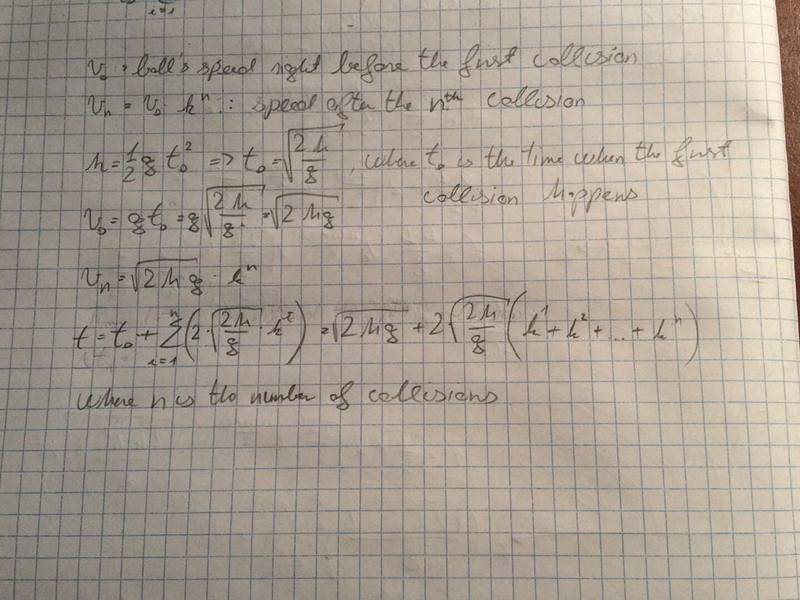 i=1
v₀ : ball's speed right before the first collision
vₙ = v₀ · kⁿ : speed after the nᵗʰ collision
h = 1/2 g t₀² => t₀ = √(2h/g), where t₀ is the time when the first
collision happens
v₀ = g t₀ = g√(2h/g) = √(2hg)
vₙ = √(2hg) · kⁿ
t = t₀ + Σᵢ₌₁ⁿ (2·√(2h/g) · kⁱ) = √(2hg) + 2√(2h/g) (k¹ + k² + ... + kⁿ)
where n is the number of collisions.